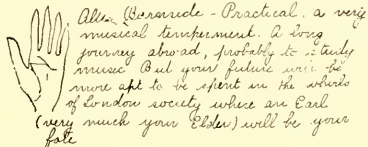 Burnside - Practical. a very
musical temperment. A long
journey abroad, probably to study
music But your future will be
more apt to be spent in the whirls
of London society where an Earl
(very much your Elder) will be your
fate